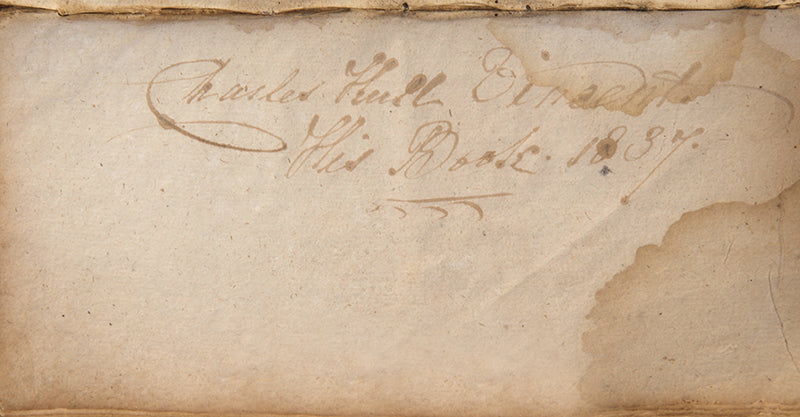 Charles Hull Vincent
His Book. 1837.